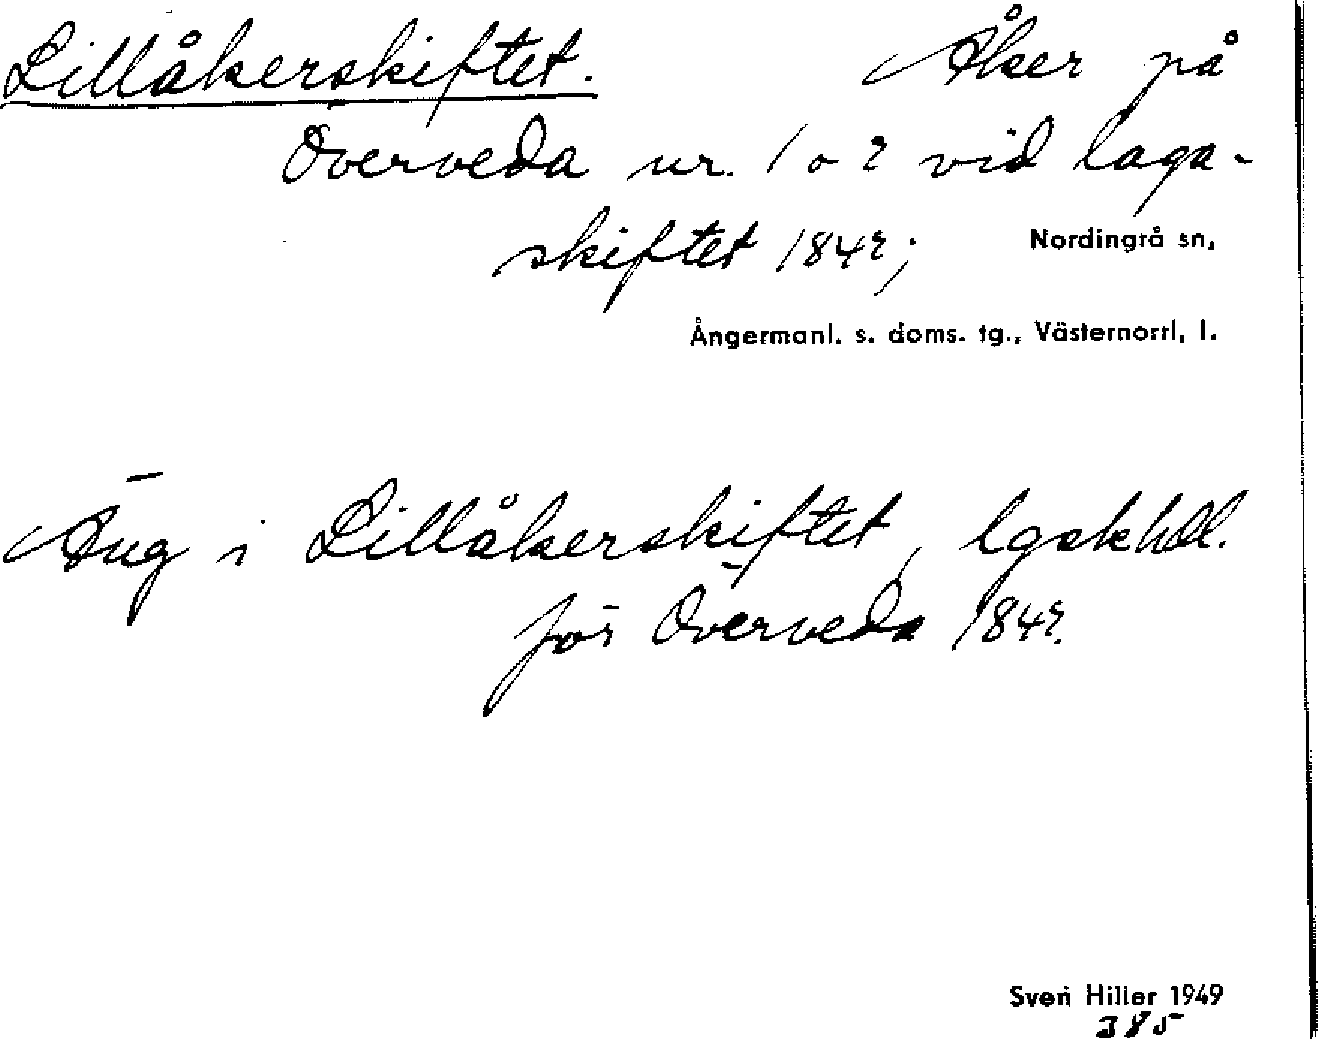 Lillåkerskiftet. Åker på
Överveda nr. 1 o 2 vid laga-
skiftet 1842;
Nordingrå sn,
Ångermanl. s. doms. tg., Västernorrl. l.
Äng i Lillåkerskiftet, lgskhdl.
för Överveda 1842.
Sven Hiller 1949
385